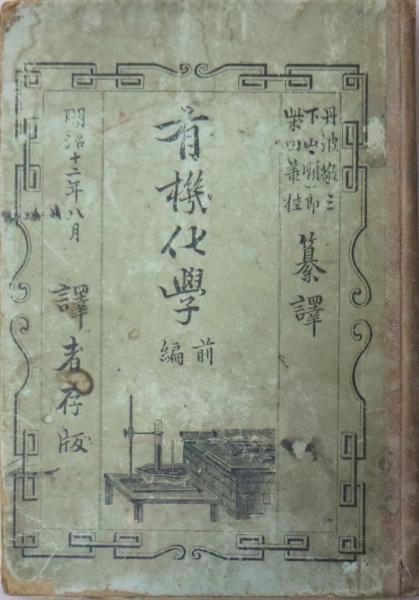 丹波敬三
下山順一郎
柴田承桂
纂譯
有機化學
前編
明治十二年八月
譯者存版